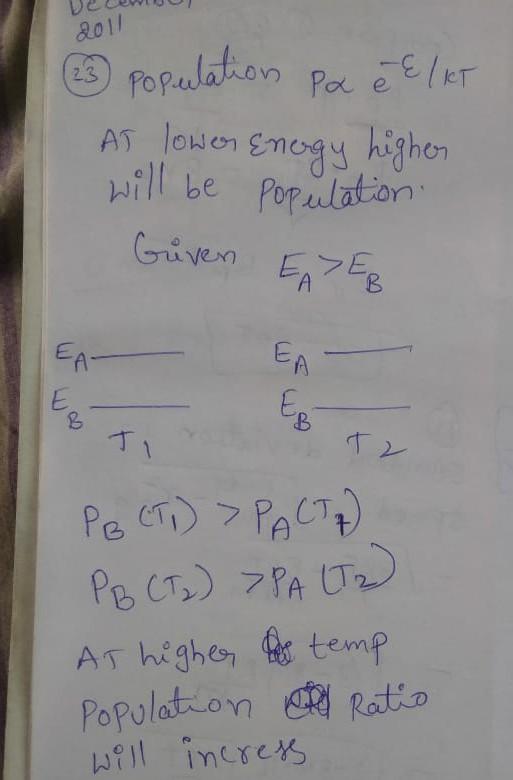 December
2011
23 Population P∝ e^-ε/kT
AT lower Energy higher
will be Population.
Given E_A > E_B
E_A E_A
E_B E_B
T_1 T_2
P_B (T_1) > P_A (T_1)
P_B (T_2) > P_A (T_2)
AT higher temp
Population Ratio
will incress